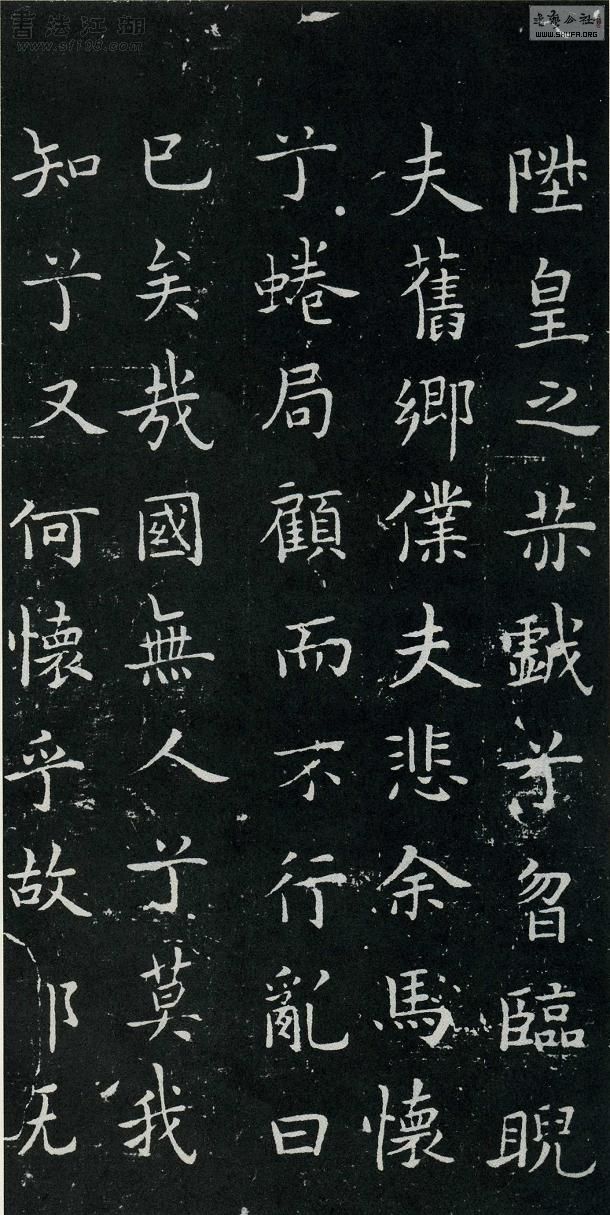 書法江湖
www.sf108.com
WWW.SHUFA.ORG
陞皇之赫戲兮曶臨睨
夫舊鄉僕夫悲余馬懷
兮蜷局顧而不行亂曰
已矣哉國無人兮莫我
知兮又何懷乎故